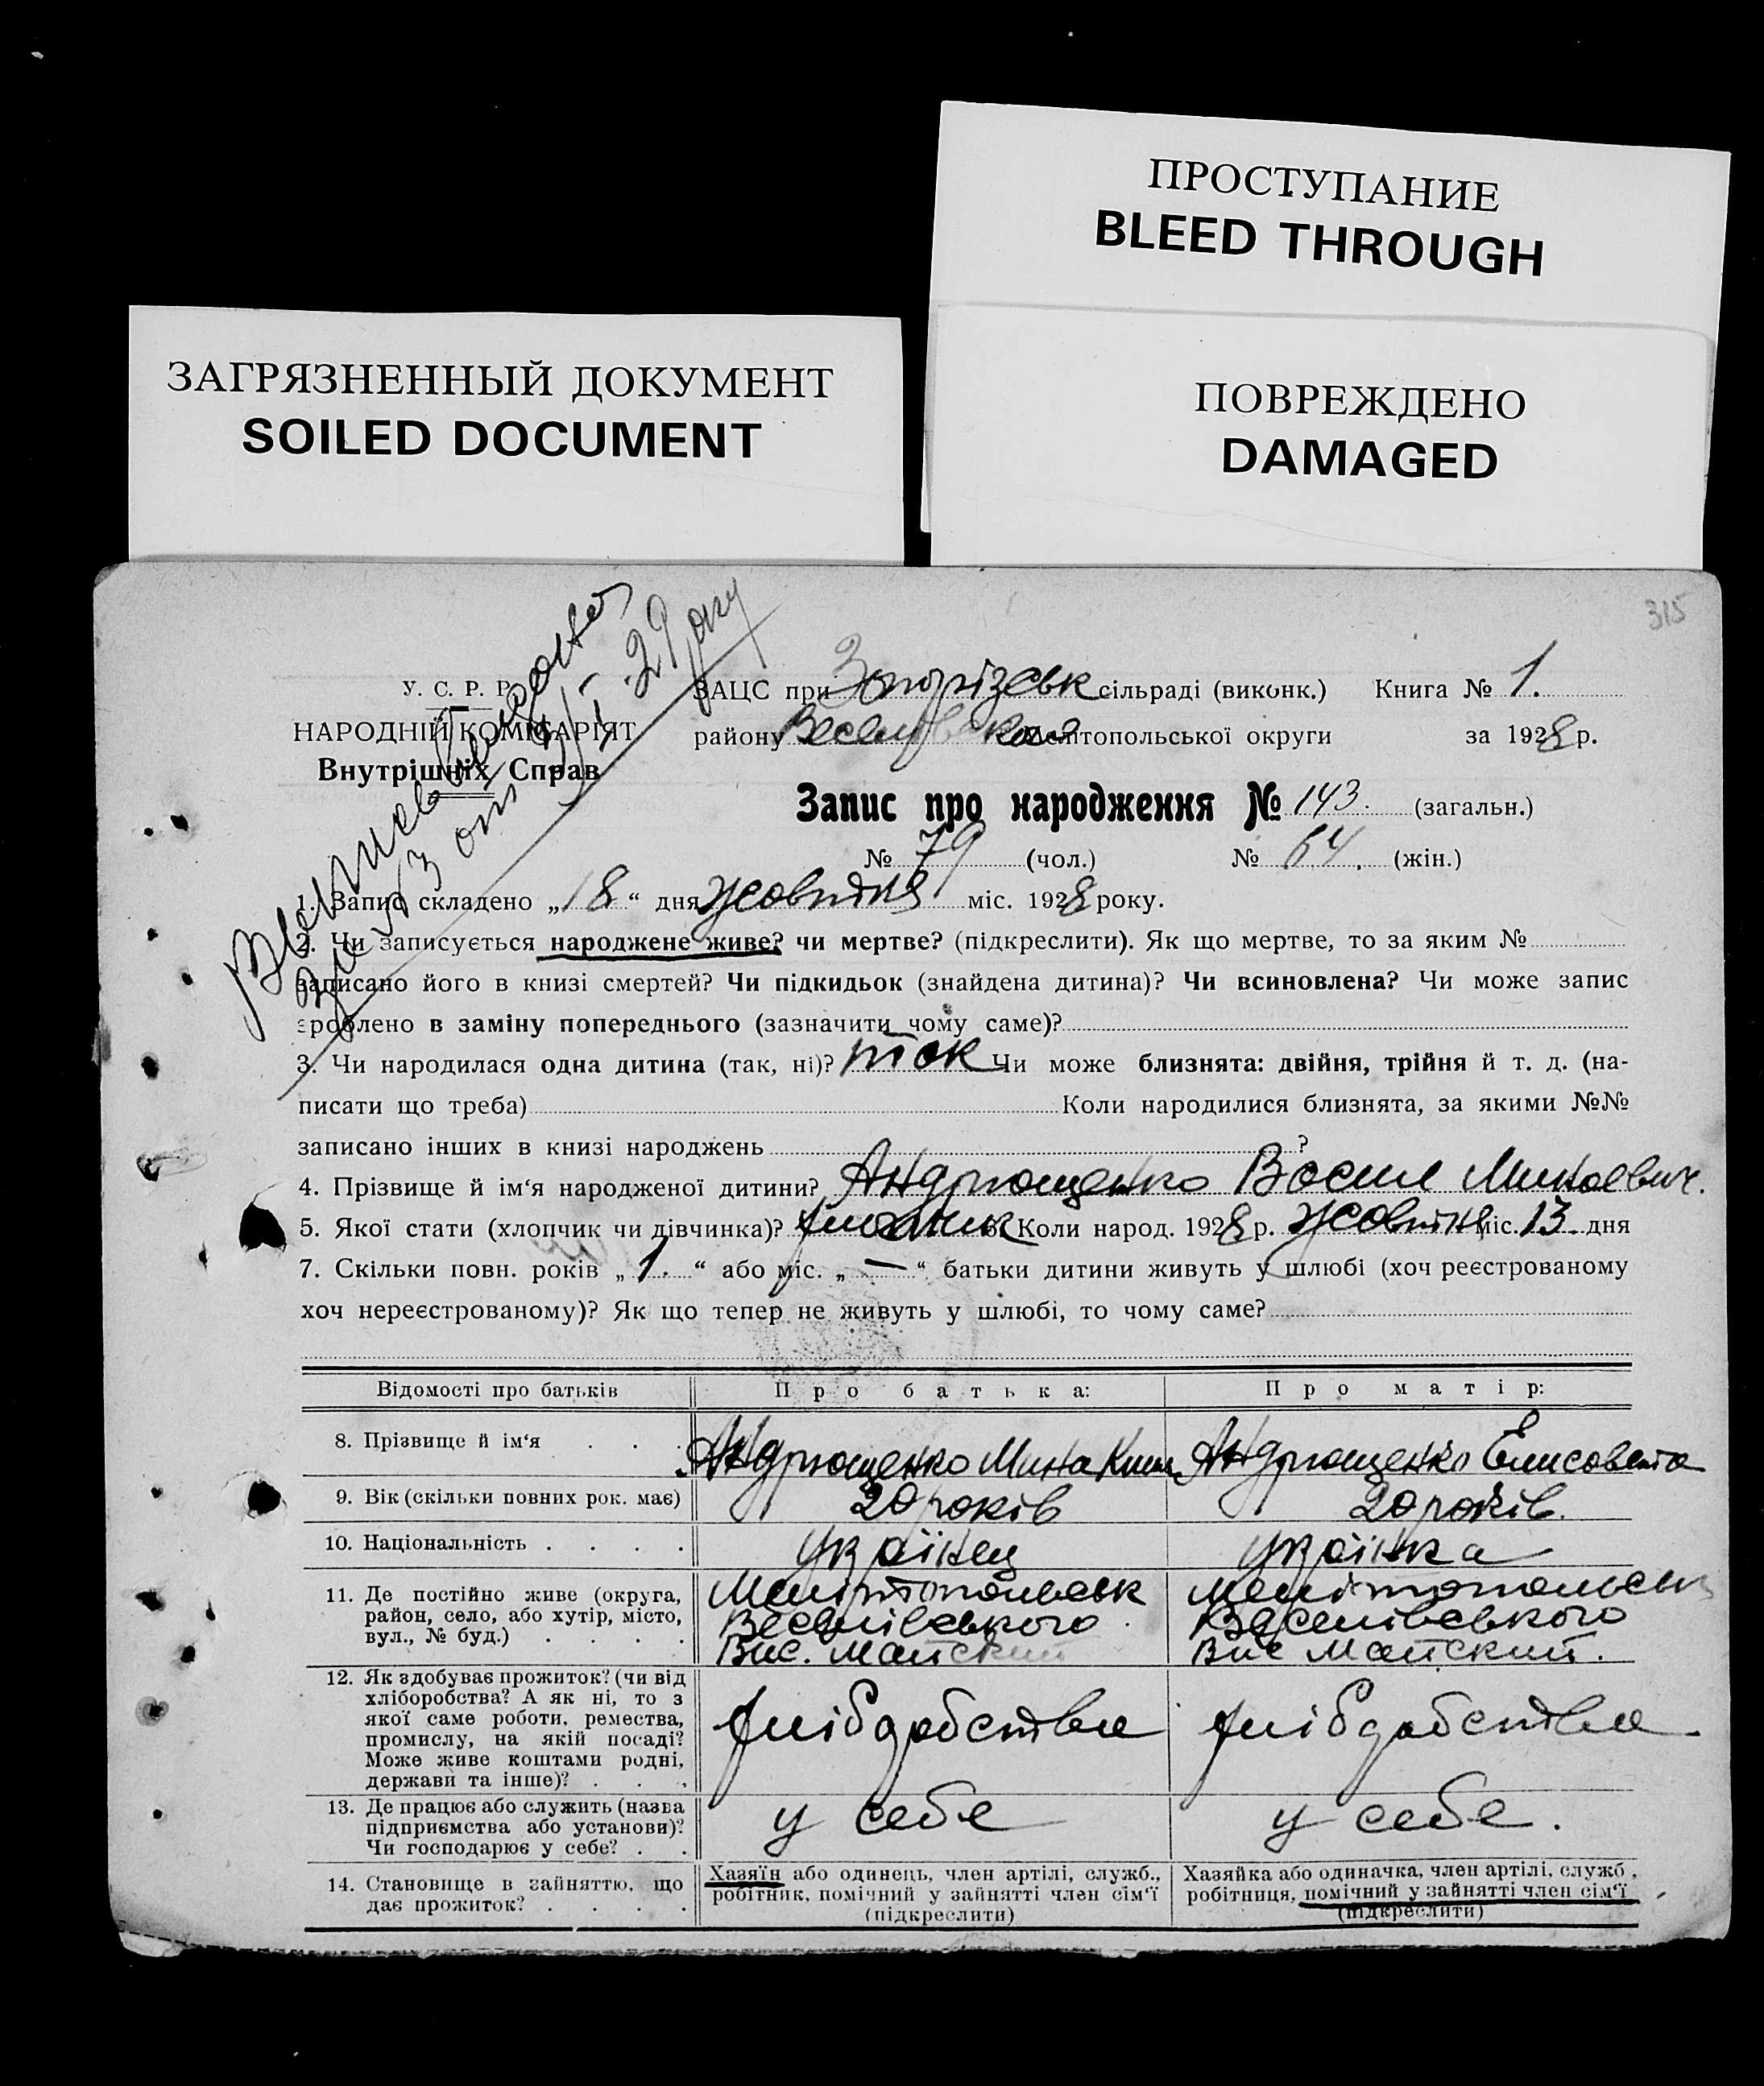 ПРОСТУПАНИЕ
BLEED THROUGH
ЗАГРЯЗНЕННЫЙ ДОКУМЕНТ
SOILED DOCUMENT
ПОВРЕЖДЕНО
DAMAGED
315
У. С. Р. Р.
НАРОДНІЙ КОМІСАРІЯТ
Внутрішніх Справ
ЗАЦС при Запорізськ сільраді (виконк.) Книга № 1.
району Мелітопольської округи за 1928 р.
Запис про народження № 143. (загальн.)
№ 79 (чол.) № 64. (жін.)
1. Запис складено „18“ дня жовтня міс. 1928 року.
2. Чи записується народжене живе? чи мертве? (підкреслити). Як що мертве, то за яким №
записано його в книзі смертей? Чи підкидьок (знайдена дитина)? Чи всиновлена? Чи може запис
зроблено в заміну попереднього (зазначити чому саме)?
3. Чи народилася одна дитина (так, ні)? так Чи може близнята: двійня, трійня й т. д. (на-
писати що треба) Коли народилися близнята, за якими №№
записано інших в книзі народжень ?
4. Прізвище й ім‘я народженої дитини? Андрющенко Василь Минаевич.
5. Якої стати (хлопчик чи дівчинка)? хлопчик 6. Коли народ. 1928 р. жовтня міс. 13. дня
7. Скільки повн. років „1.“ або міс. „—“ батьки дитини живуть у шлюбі (хоч реєстрованому
хоч нереєстрованому)? Як що тепер не живуть у шлюбі, то чому саме?
Відомості про батьків Про батька: Про матір:
8. Прізвище й ім‘я . . . Андрющенко Мина Андрющенко Елисовета
9. Вік (скільки повних рок. має) 20 років 20 років.
10. Національність . . . . українец українка
11. Де постійно живе (округа, район, село, або хутір, місто, вул., № буд.) . . . .
Мелітопольськ Мелітопольськ
Веселівського Веселівського
Вис. Майский Вис Майский.
12. Як здобуває прожиток? (чи від хліборобства? А як ні, то з якої саме роботи, ремества, промислу, на якій посаді? Може живе коштами родні, держави та інше)? . . .
хлібдобства хлібдобства.
13. Де працює або служить (назва підприємства або установи)? Чи господарює у себе? . .
у себе у себе.
14. Становище в зайняттю, що дає прожиток? . . . .
Хазяїн або одинець, член артілі, служб., робітник, помічний у зайнятті член сім‘ї (підкреслити)
Хазяйка або одиначка, член артілі, служб., робітниця, помічний у зайнятті член сім‘ї (підкреслити)